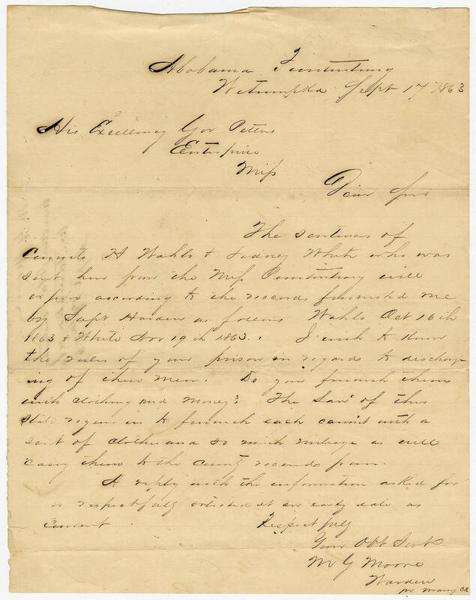 Alabama Penitentiary
Wetumpka Sept 17 1863
His Excellency Gov Pettus
Enterprise
Miss
Dear Sir
The sentences of
Convicts H Wahls & Sidney White who was
sent here from the Miss Penitentiary will
expire according to the records furnished me
by Supt Harden as follows Wahls Oct 16th
1863 & White Nov 19th 1863. I wish to know
the rules of your prison in regard to discharg
ing of these men. Do you furnish them
with clothing and money? The Law of this
State requires us to furnish each convict with a
suit of clothes and so much mileage as will
carry them to the County received from.
A reply with the information asked for
is respectfully solicited at as early date as
convent.
Respectfully
Your Obt Servt
M G Moore
Warden